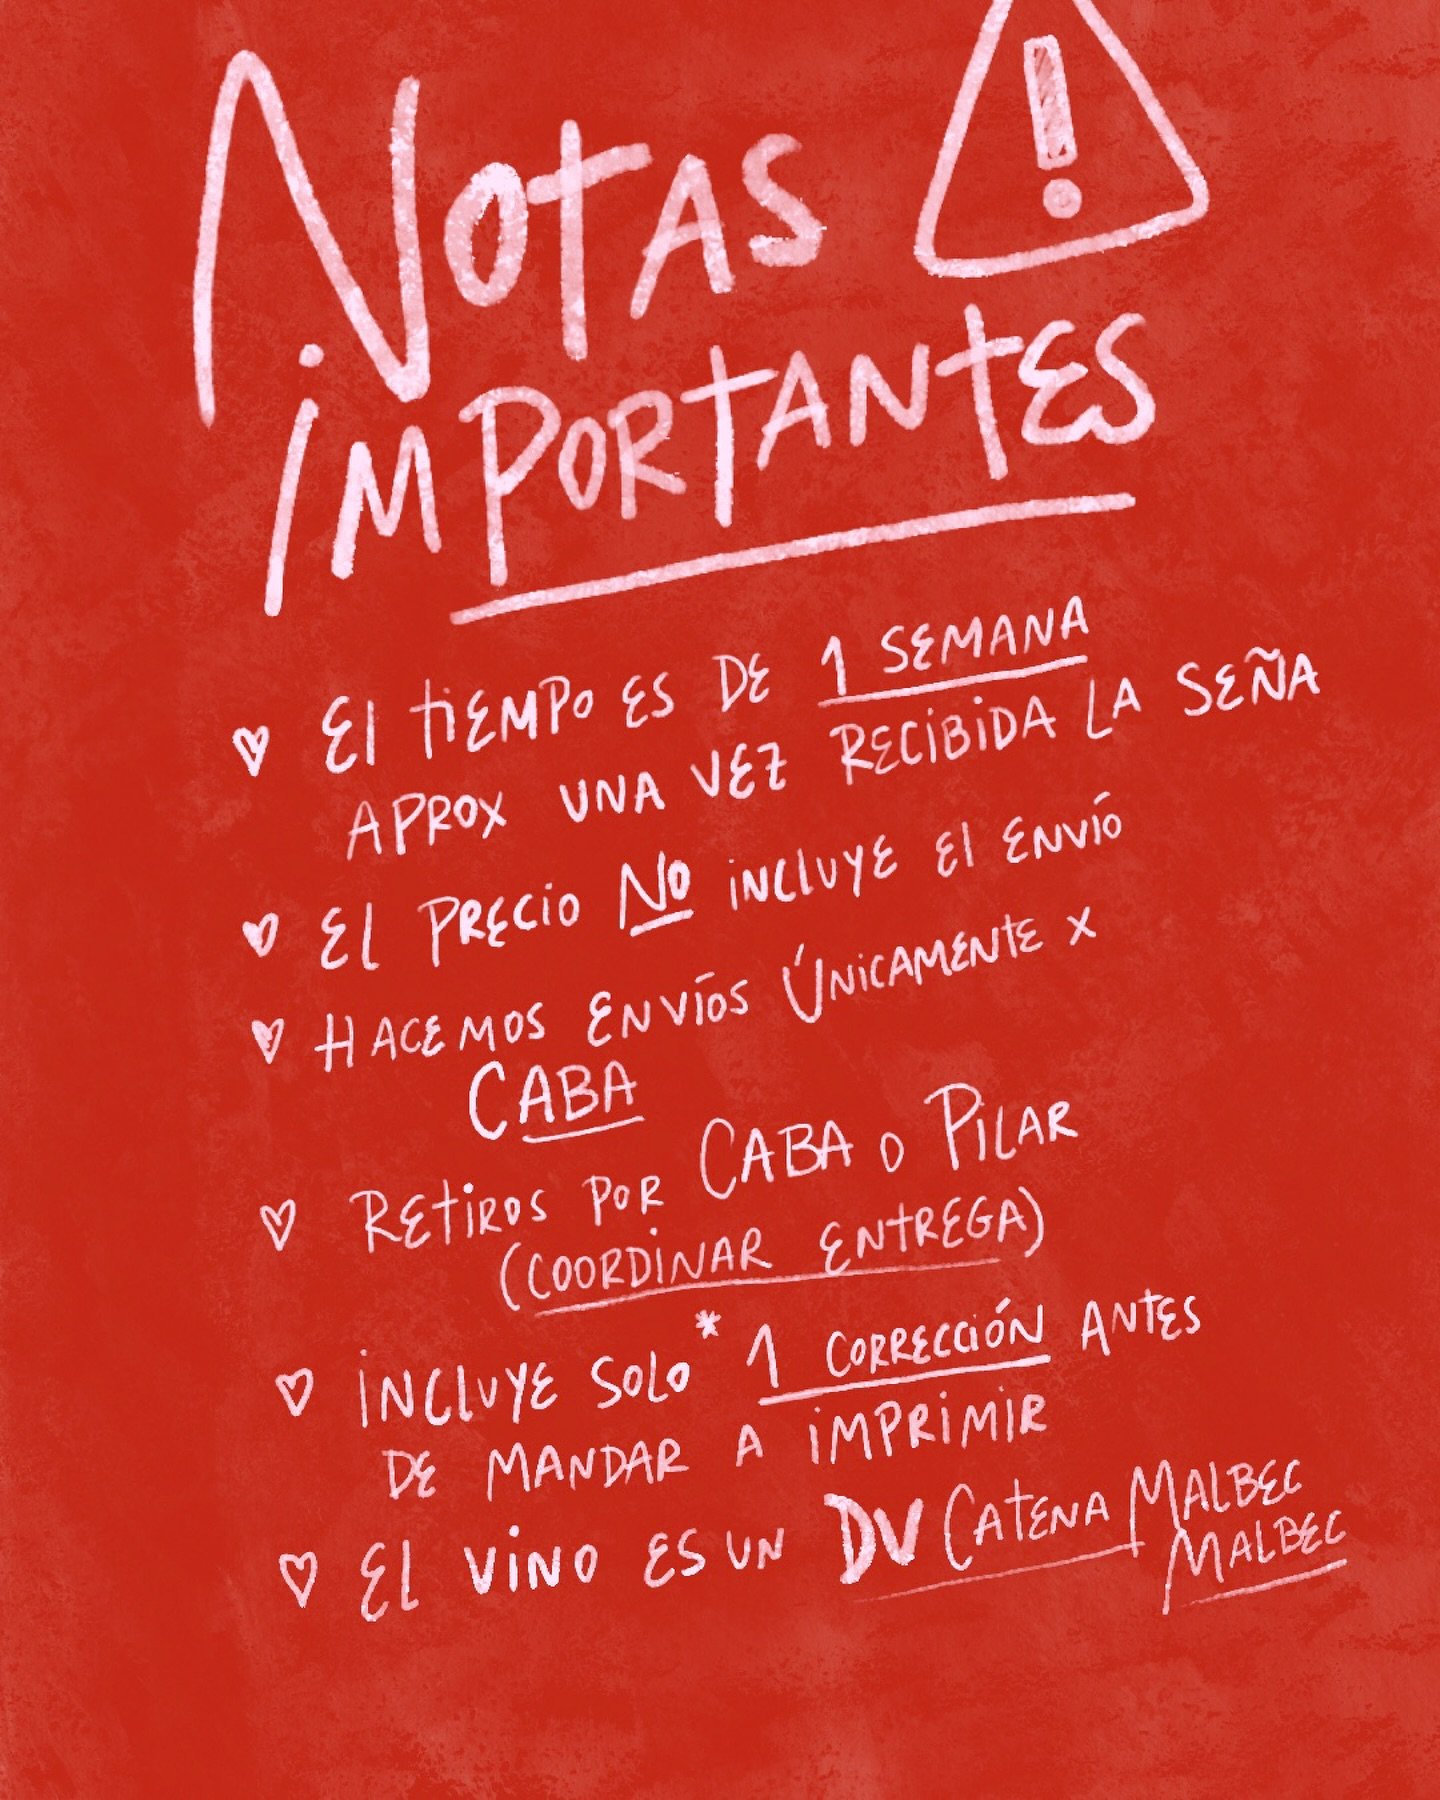 NOTAS
iMPORTANTES
El tiEMPO ES DE 1 SEMANA
APROX UNA VEZ RECiBiDA LA SEÑA
EL PRECiO NO iNCLUYE El ENVíO
HACEMOS ENVíOS ÚNiCAMENtE x
CABA
REtiROS POR CABA O PiLAR
(COORDiNAR ENtREGA)
iNCLUYE SOLO* 1 CORRECCiÓN ANtES
DE MANDAR A iMPRiMiR
EL ViNO ES UN DV CAtENA MALBEC
MALBEC